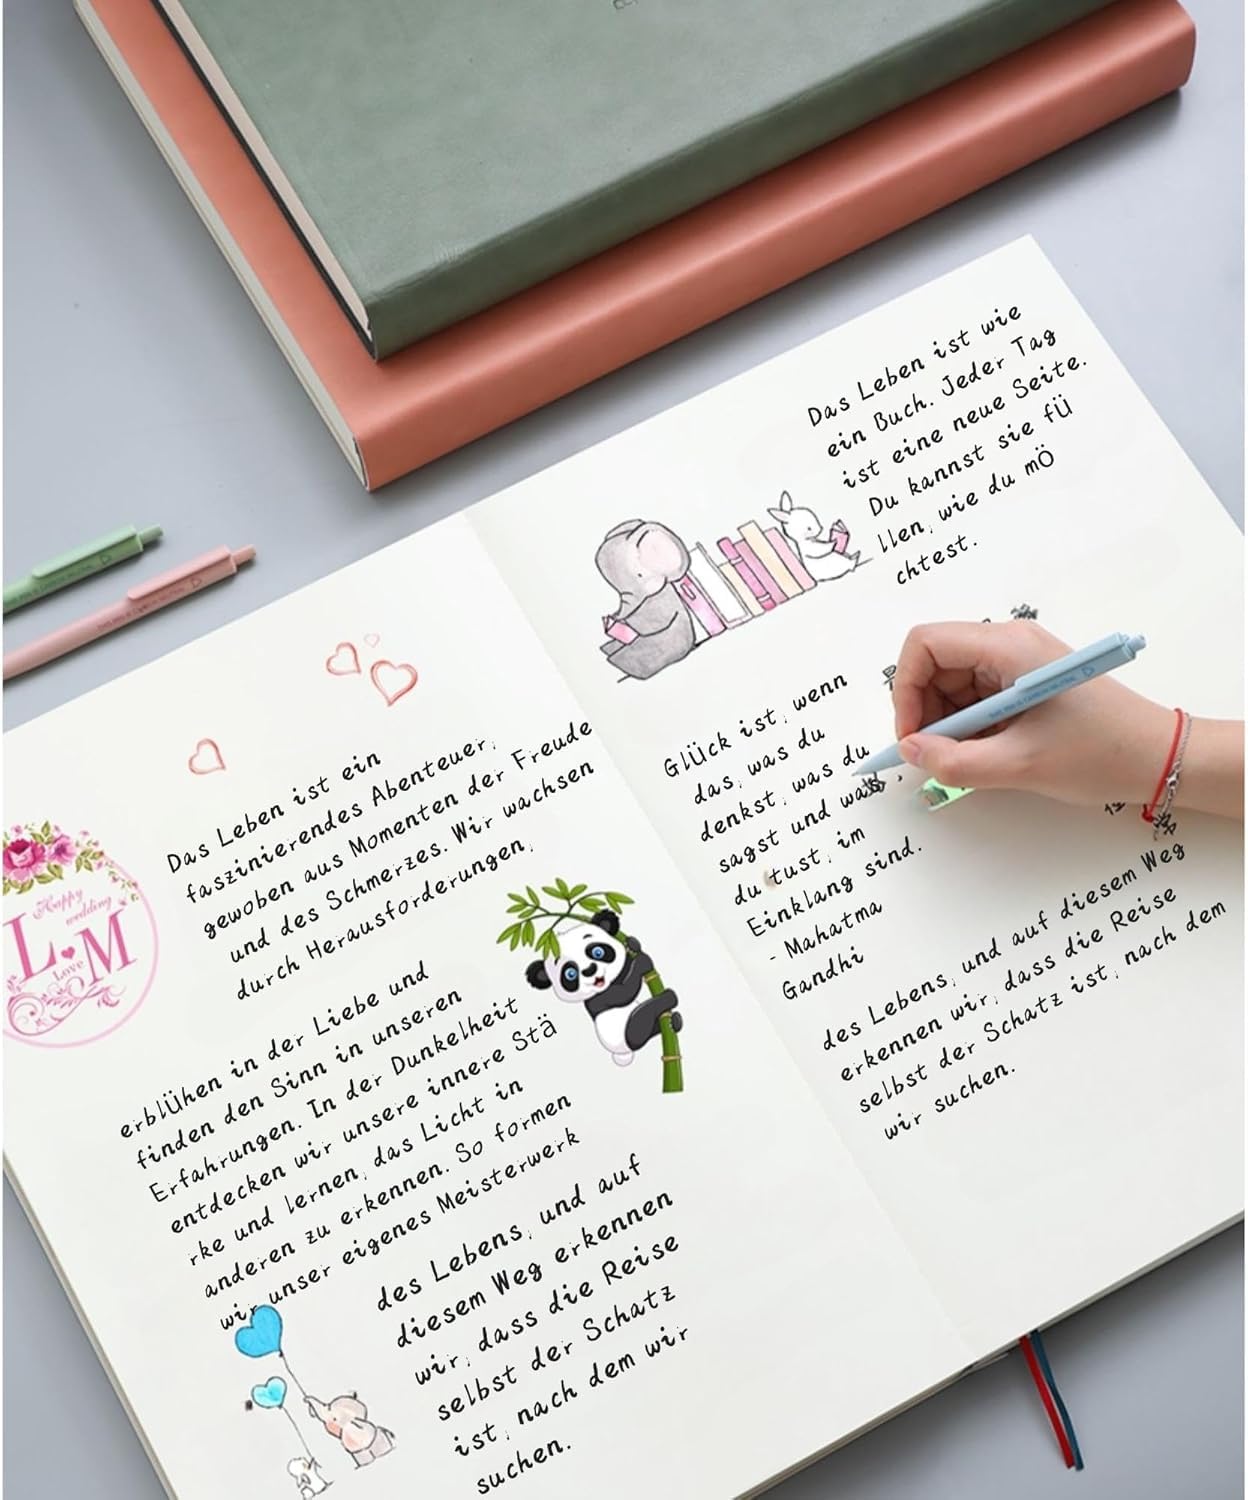 Das Leben ist ein
faszinierendes Abenteuer,
gewoben aus Momenten der Freude
und des Schmerzes. Wir wachsen
durch Herausforderungen,
Happy
wedding
L♥M
Love
erblühen in der Liebe und
finden den Sinn in unseren
Erfahrungen. In der Dunkelheit
entdecken wir unsere innere Stä
rke und lernen, das Licht in
anderen zu erkennen. So formen
wir unser eigenes Meisterwerk
des Lebens, und auf
diesem Weg erkennen
wir, dass die Reise
selbst der Schatz
ist, nach dem wir
suchen.
Das Leben ist wie
ein Buch. Jeder Tag
ist eine neue Seite.
Du kannst sie fÜ
llen, wie du mÖ
chtest.
Glück ist, wenn
das, was du
denkst, was du
sagst und was
du tust, im
Einklang sind.
- Mahatma
Gandhi
des Lebens, und auf diesem Weg
erkennen wir, dass die Reise
selbst der Schatz ist, nach dem
wir suchen.